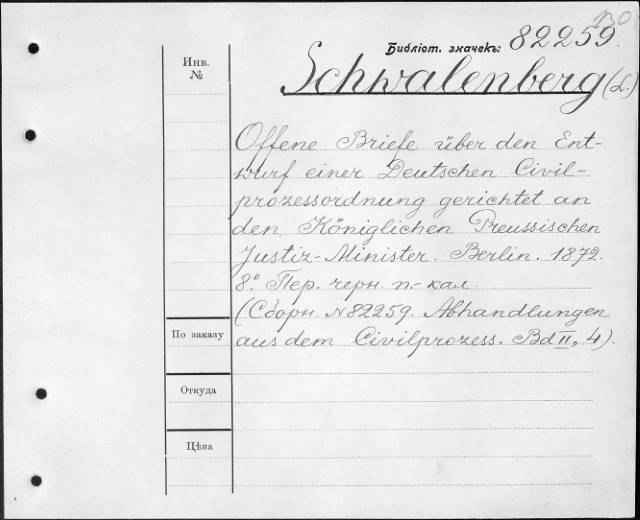 130
Библіот. значекъ: 82259.
Инв.
№
Schwalenberg (L.)
Offene Briefe über den Ent-
wurf einer Deutschen Civil-
prozessordnung gerichtet an
den Königlichen Preussischen
Justiz-Minister. Berlin. 1872.
8.° Пер. черн. п.-кал.
(Сборн. №82259. Abhandlungen
По заказу
aus dem Civilprozess. Bd II, 4).
Откуда
Цѣна